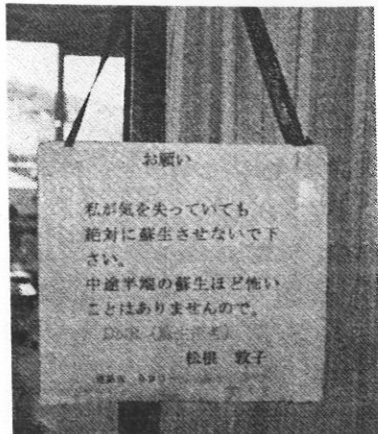 お願い
私が気を失っていても
絶対に蘇生させないで下
さい。
中途半端の蘇生ほど怖い
ことはありませんので。
DNR
松根 敦子